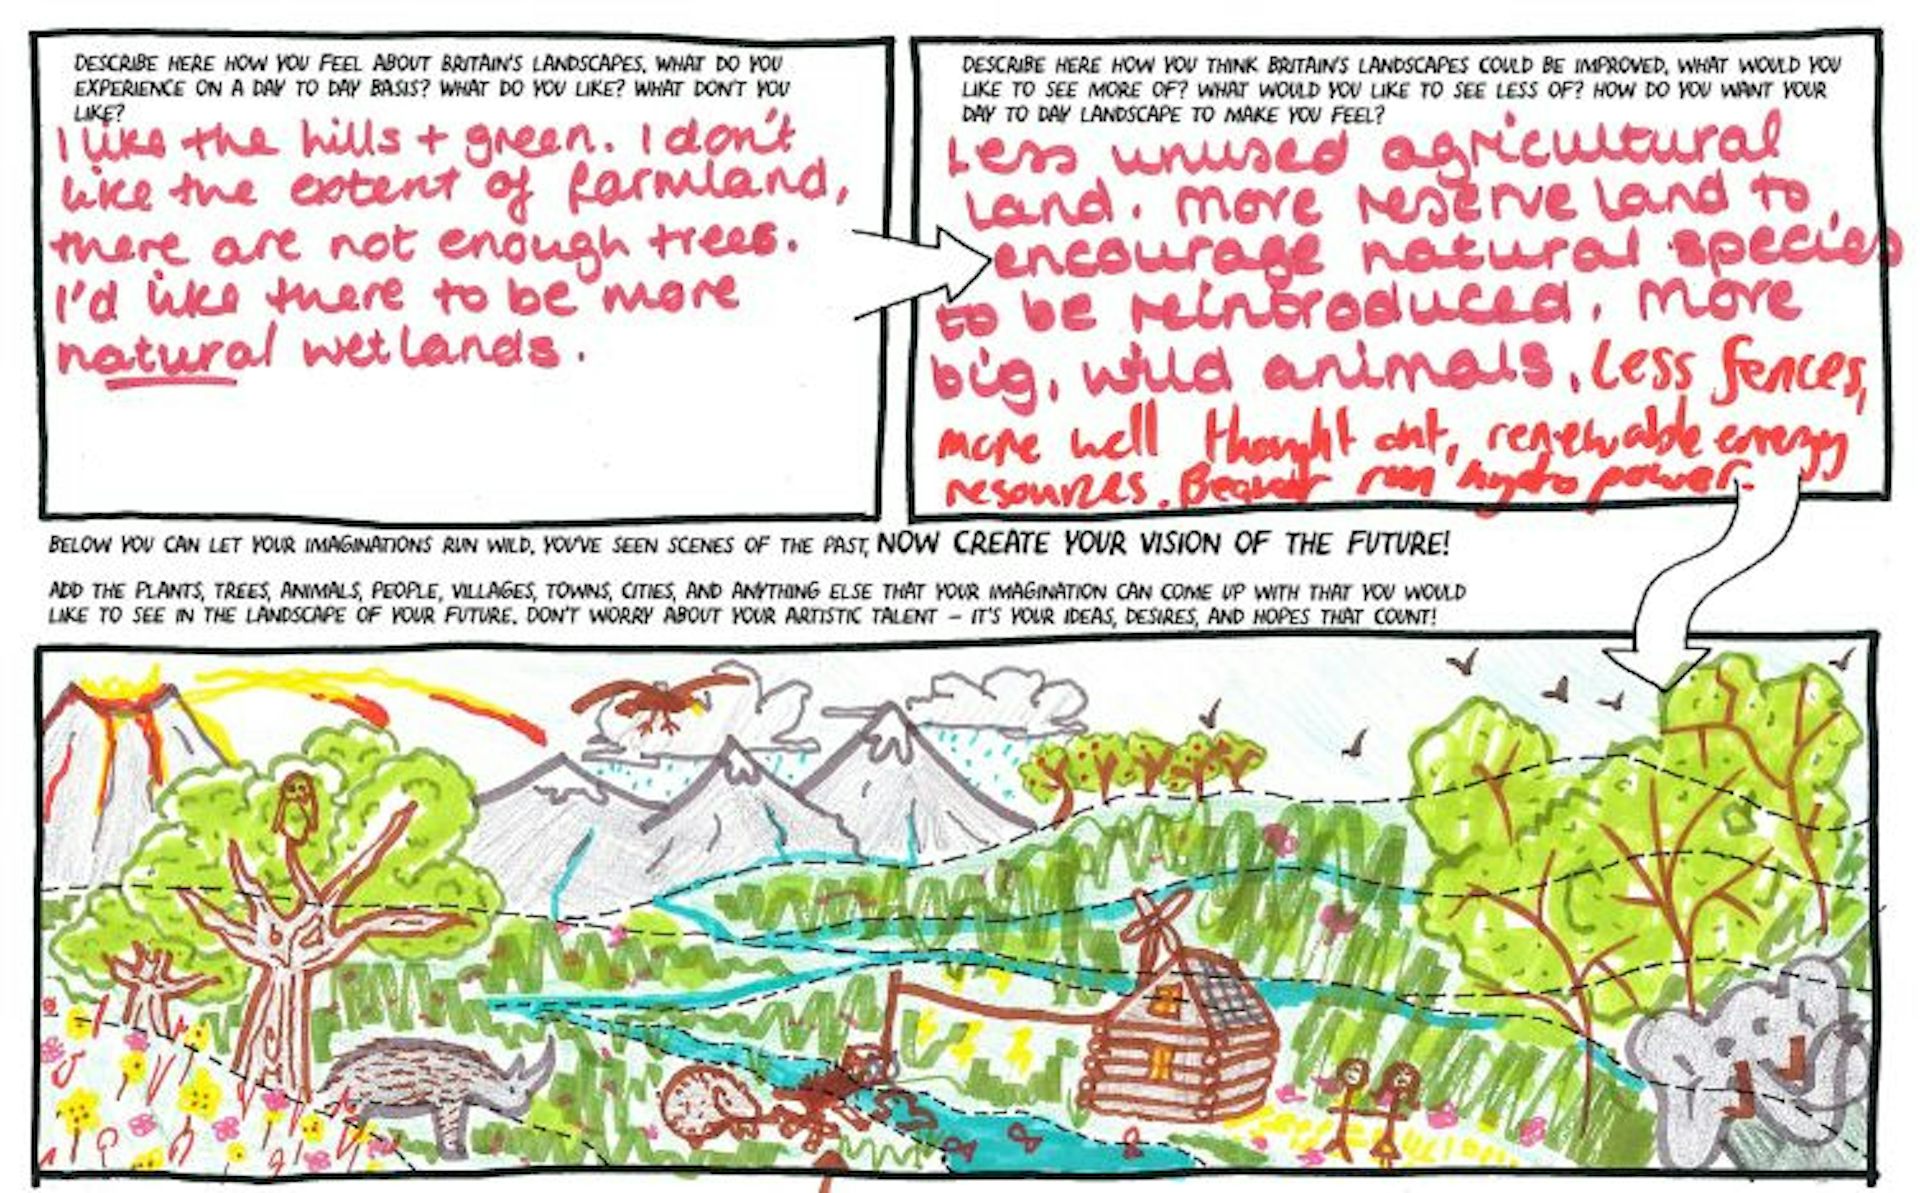 DESCRIBE HERE HOW YOU FEEL ABOUT BRITAIN'S LANDSCAPES. WHAT DO YOU
EXPERIENCE ON A DAY TO DAY BASIS? WHAT DO YOU LIKE? WHAT DON'T YOU
LIKE?
I like the hills + green. I don't
like the extent of farmland,
there are not enough trees.
I'd like there to be more
natural wetlands.
DESCRIBE HERE HOW YOU THINK BRITAIN'S LANDSCAPES COULD BE IMPROVED. WHAT WOULD YOU
LIKE TO SEE MORE OF? WHAT WOULD YOU LIKE TO SEE LESS OF? HOW DO YOU WANT YOUR
DAY TO DAY LANDSCAPE TO MAKE YOU FEEL?
Less unused agricultural
land. More reserve land to
encourage natural species
to be reintroduced. More
big, wild animals. Less fences,
more well thought out, renewable energy
resources. Beaver run hydro power.
BELOW YOU CAN LET YOUR IMAGINATIONS RUN WILD. YOU'VE SEEN SCENES OF THE PAST, NOW CREATE YOUR VISION OF THE FUTURE!
ADD THE PLANTS, TREES, ANIMALS, PEOPLE, VILLAGES, TOWNS, CITIES, AND ANYTHING ELSE THAT YOUR IMAGINATION CAN COME UP WITH THAT YOU WOULD
LIKE TO SEE IN THE LANDSCAPE OF YOUR FUTURE. DON'T WORRY ABOUT YOUR ARTISTIC TALENT – IT'S YOUR IDEAS, DESIRES, AND HOPES THAT COUNT!